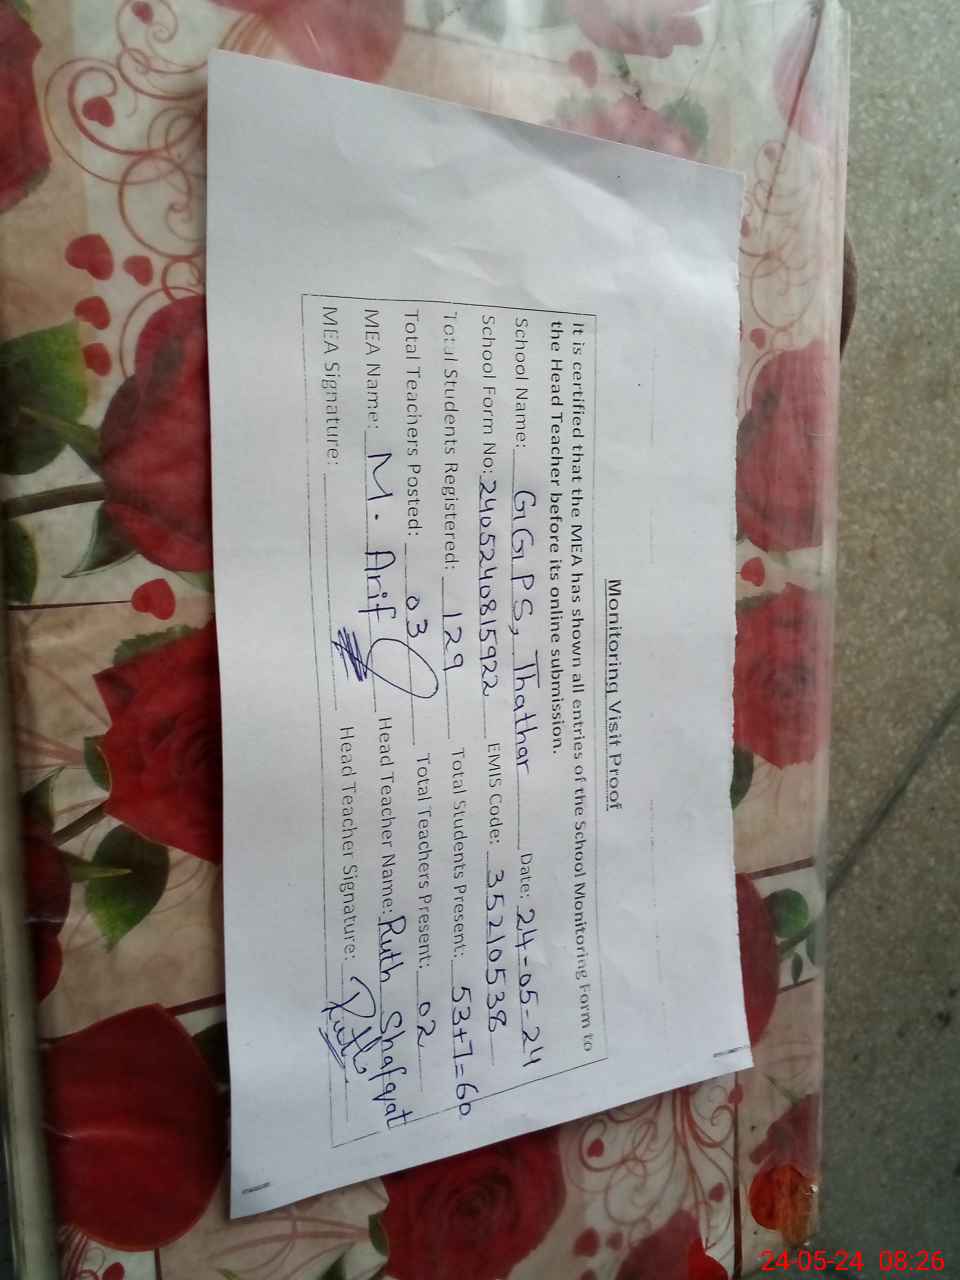 Monitoring Visit Proof
It is certified that the MEA has shown all entries of the School Monitoring Form to
the Head Teacher before its online submission.
School Name: GGPS, Thathar Date: 24-05-24
School Form No: 2405240815922 EMIS Code: 35210538
Total Students Registered: 129 Total Students Present: 53+7=60
Total Teachers Posted: 03 Total Teachers Present: 02
MEA Name: M. Arif Head Teacher Name: Ruth Shafqat
MEA Signature: Head Teacher Signature: Ruth
24-05-24 08:26